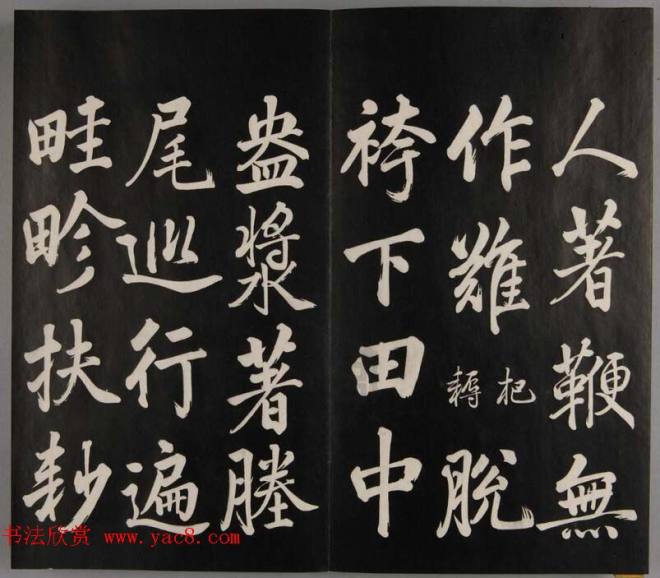 人著鞭無
作難杷脫
袴下田中
盎漿著塍
尾巡行遍
畦畛扶耖
书法欣赏 www.yac8.com